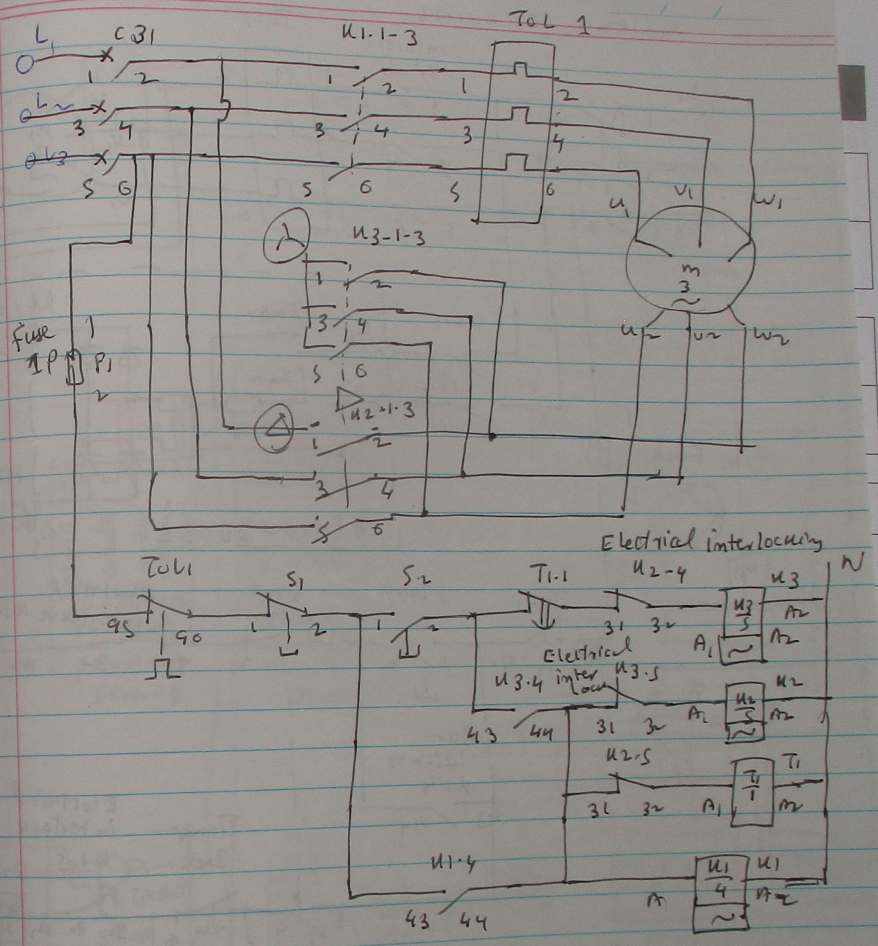 L1 CB1 K1.1-3 TOL 1
1 2 1 2 1 2
L2
3 4 3 4 3 4
L3
5 6 5 6 5 6
U1 V1 W1
K3-1-3
1 2
M
3
~
3 4
U2 V2 W2
Fuse 1
1P P1
2
5 6
K2-1-3
1 2
3 4
5 6
Electrical interlocking
TOL1 S1 S2 T1.1 K2-4 K3 N
95 96 1 2 1 2 31 32 A1 K3/5 ~ A2
A2
Electrical
inter
lock
K3.4 K3.5 K2
43 44 31 32 A2 K2/5 ~ A2
K2.5 T1
31 32 A1 T1/1 A2
K1.4 K1
43 44 A K1/4 ~ A2